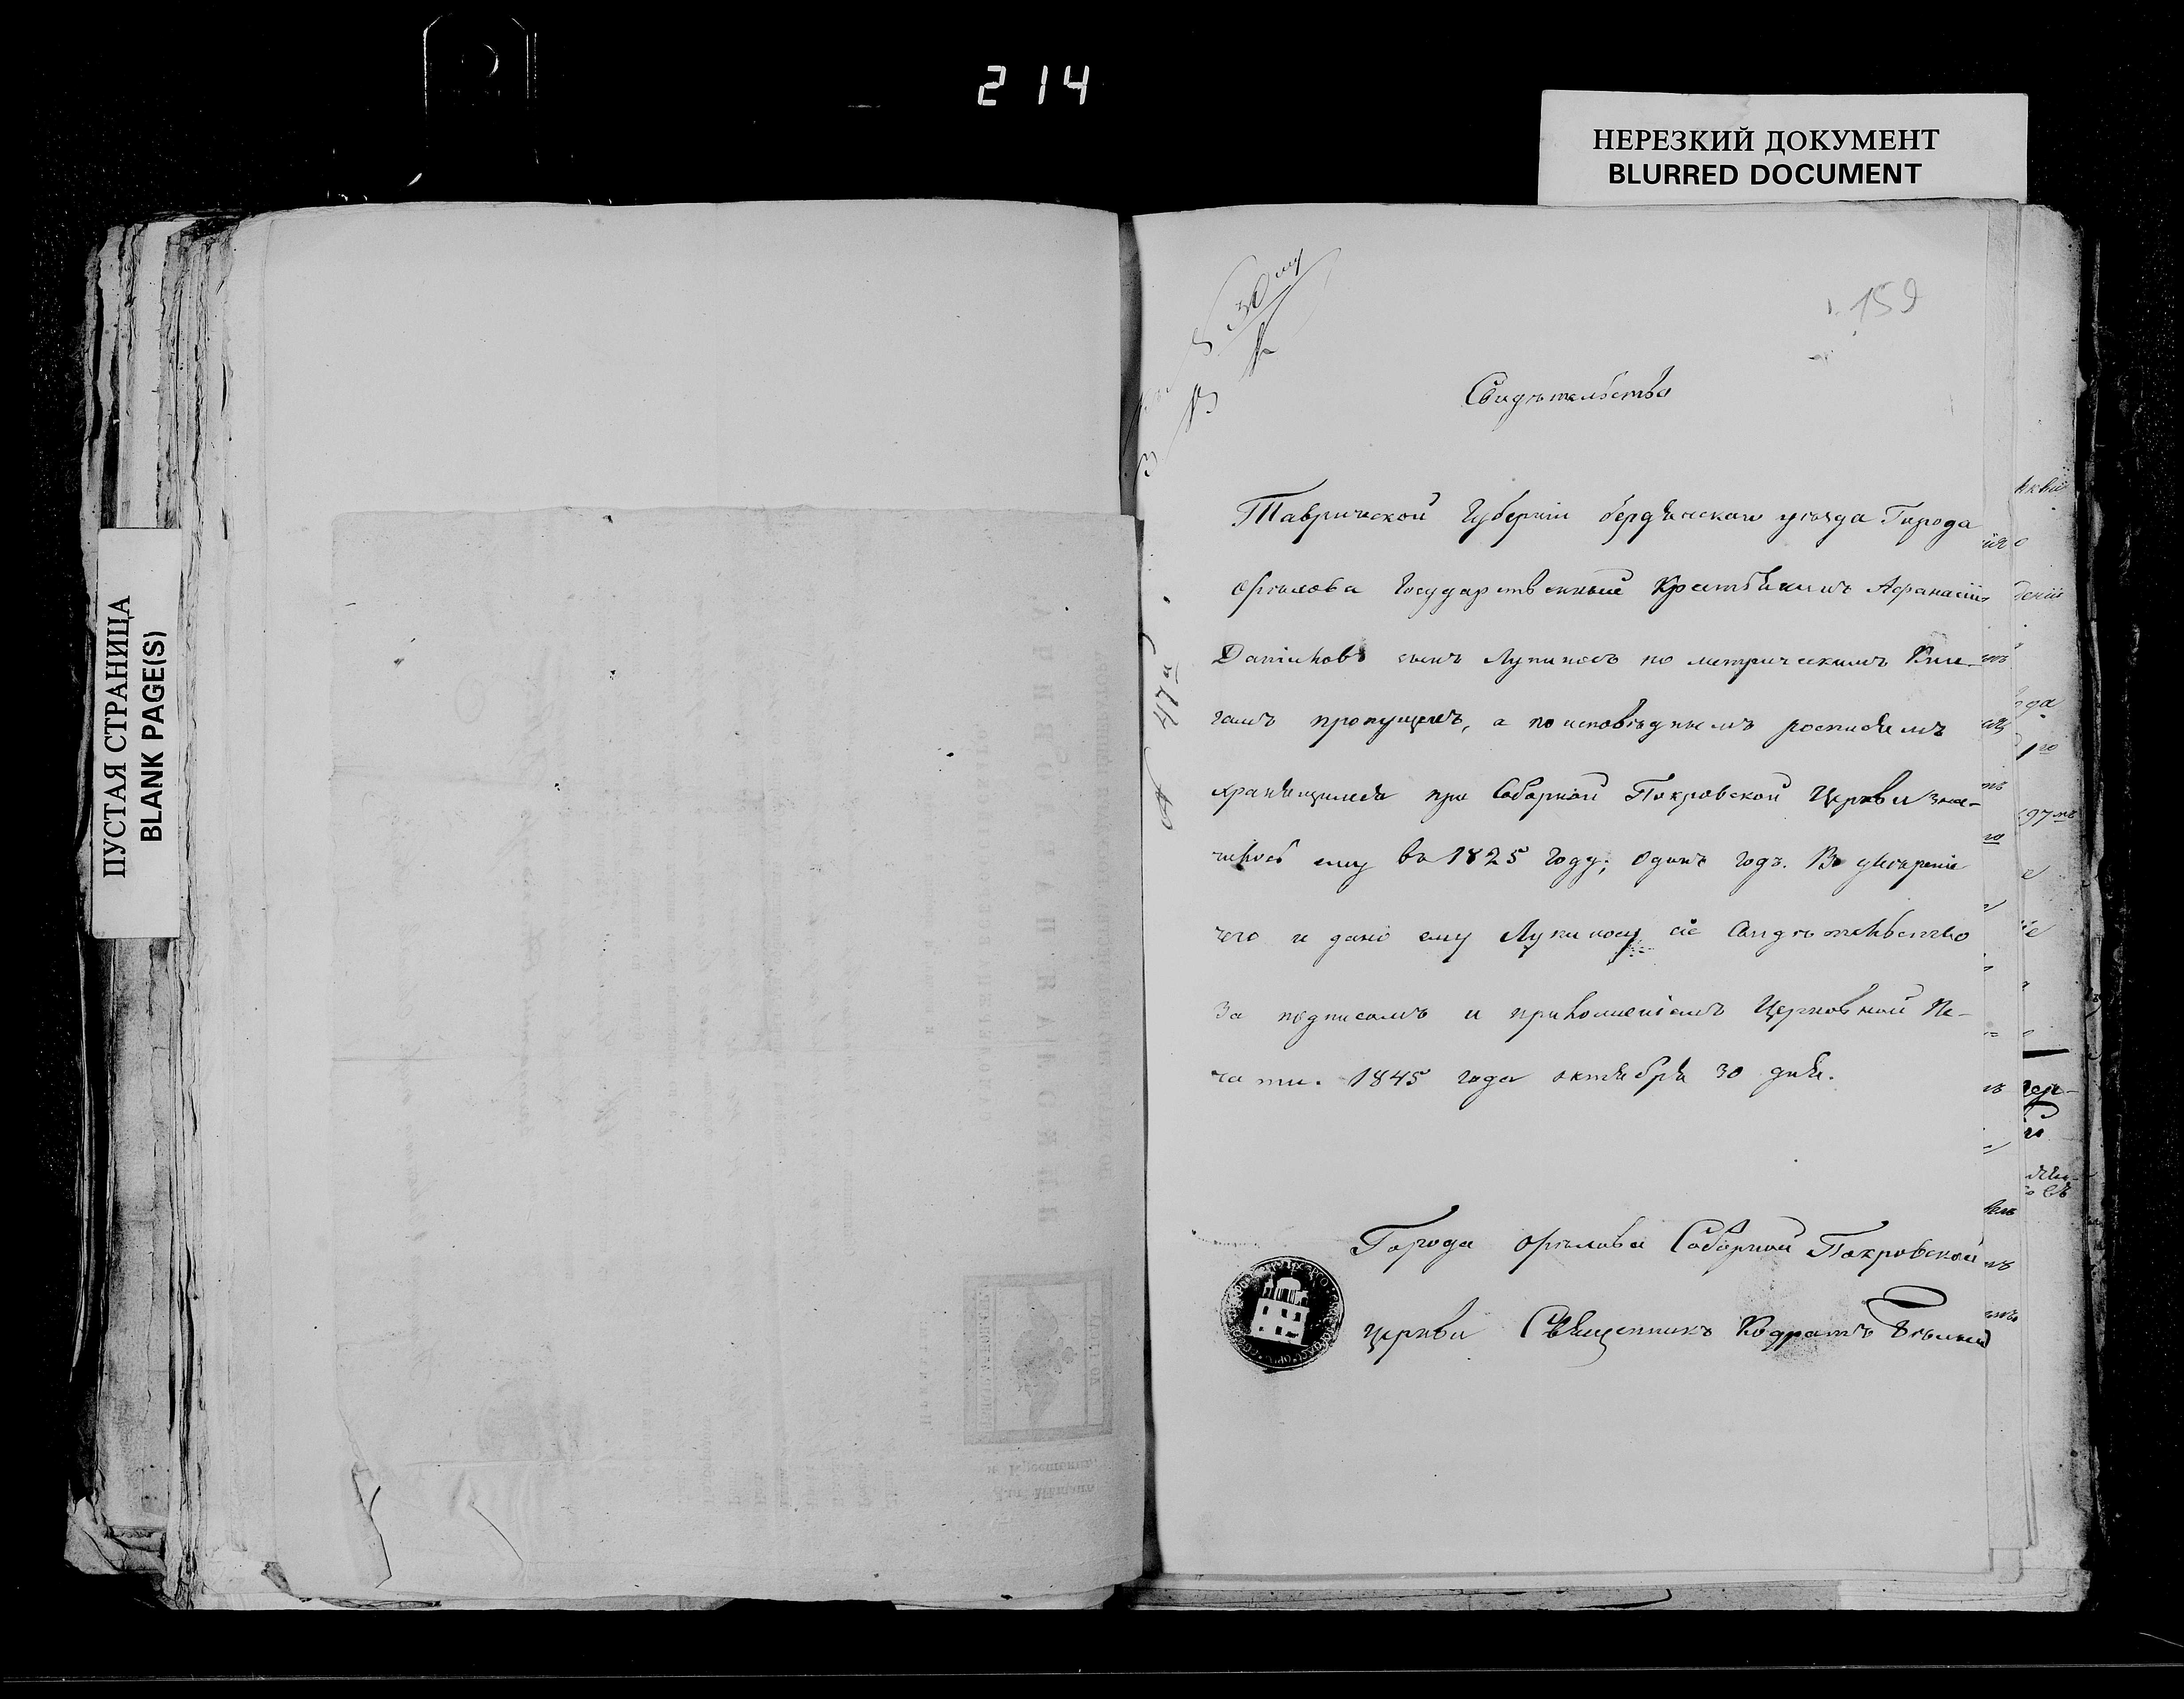 214
НЕРЕЗКИЙ ДОКУМЕНТ
BLURRED DOCUMENT
ПУСТАЯ СТРАНИЦА
BLANK PAGE(S)
159
Свидѣтельство
Таврической Губерніи бердянскаго уѣзда Города
Орѣхова Государственный Крестьянинъ Афанасій
Даниловъ сынъ Лупиносъ по метрическимъ Кни-
гамъ пропущенъ, а по исповѣднымъ росписямъ
хранящимся при Соборной Покровской Церкви зна-
чилось ему въ 1825 году; одинъ годъ. Во увѣреніе
чего и дано ему Лупиносу сіе Свидѣтельство
за подписомъ и приложеніемъ Церковной Пе-
чати. 1845 года октября 30 дня.
Города Орѣхова Соборной Покровской
церкви Священникъ Кодратъ